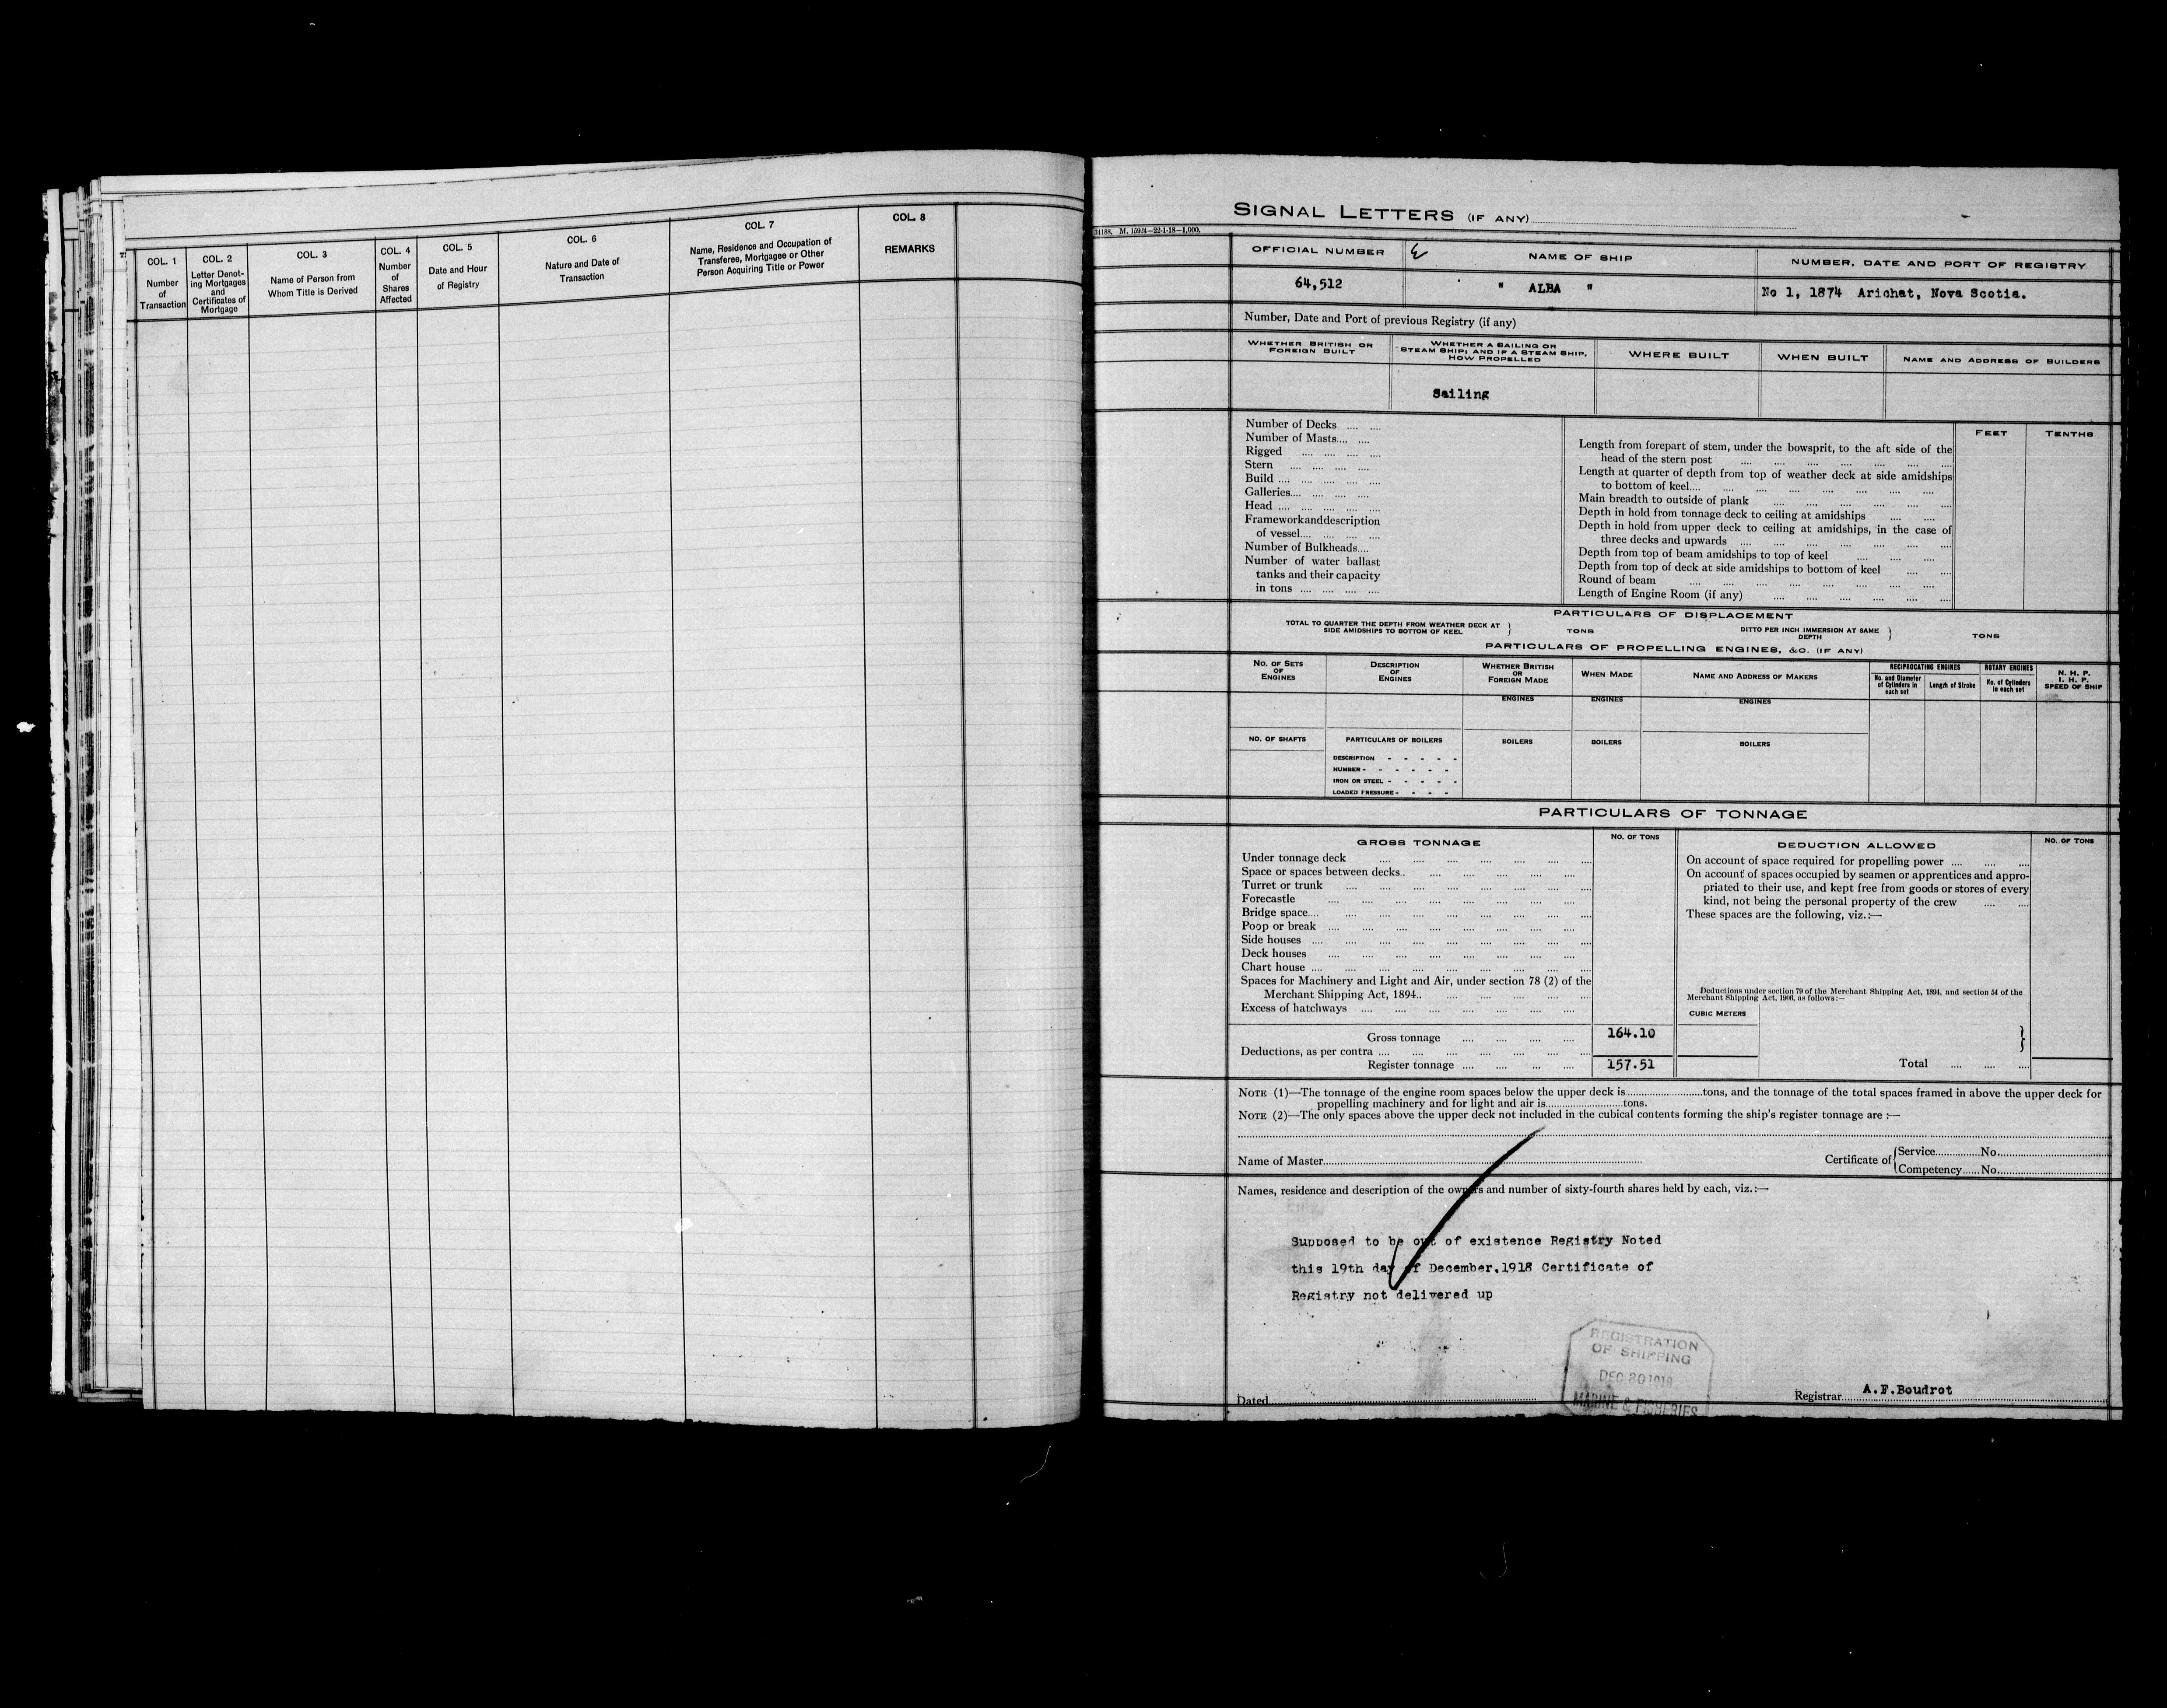 COL. 1
Number
of
Transaction
COL. 2
Letter Denot-
ing Mortgages
and
Certificates of
Mortgage
COL. 3
Name of Person from
Whom Title is Derived
COL. 4
Number
of
Shares
Affected
COL. 5
Date and Hour
of Registry
COL. 6
Nature and Date of
Transaction
COL. 7
Name, Residence and Occupation of
Transferee, Mortgagee or Other
Person Acquiring Title or Power
COL. 8
REMARKS
SIGNAL LETTERS (IF ANY)
OFFICIAL NUMBER
NAME OF SHIP
NUMBER, DATE AND PORT OF REGISTRY
64,512
" ALBA "
No 1, 1874 Arichat, Nova Scotia.
Number, Date and Port of previous Registry (if any)
WHETHER BRITISH OR
FOREIGN BUILT
WHETHER A SAILING OR
STEAM SHIP; AND IF A STEAM SHIP,
HOW PROPELLED
WHERE BUILT
WHEN BUILT
NAME AND ADDRESS OF BUILDERS
Sailing
Number of Decks .... ....
Number of Masts.... ....
Rigged .... .... .... ....
Stern .... .... .... ....
Build .... .... .... .... ....
Galleries.... .... .... ....
Head .... .... .... .... ....
Framework and description
of vessel.... .... .... ....
Number of Bulkheads....
Number of water ballast
tanks and their capacity
in tons .... .... .... ....
FEET
TENTHS
Length from forepart of stem, under the bowsprit, to the aft side of the
head of the stern post
Length at quarter of depth from top of weather deck at side amidships
to bottom of keel....
Main breadth to outside of plank
Depth in hold from tonnage deck to ceiling at amidships
Depth in hold from upper deck to ceiling at amidships, in the case of
three decks and upwards
Depth from top of beam amidships to top of keel
Depth from top of deck at side amidships to bottom of keel
Round of beam
Length of Engine Room (if any)
PARTICULARS OF DISPLACEMENT
TOTAL TO QUARTER THE DEPTH FROM WEATHER DECK AT
SIDE AMIDSHIPS TO BOTTOM OF KEEL
TONS
DITTO PER INCH IMMERSION AT SAME
DEPTH
TONS
PARTICULARS OF PROPELLING ENGINES, &C. (IF ANY)
NO. OF SETS
OF
ENGINES
DESCRIPTION
OF
ENGINES
WHETHER BRITISH
OR
FOREIGN MADE
WHEN MADE
NAME AND ADDRESS OF MAKERS
RECIPROCATING ENGINES
No. and Diameter
of Cylinders in
each set
Length of Stroke
ROTARY ENGINES
No. of Cylinders
in each set
N. H. P.
I. H. P.
SPEED OF SHIP
ENGINES
ENGINES
ENGINES
NO. OF SHAFTS
PARTICULARS OF BOILERS
BOILERS
BOILERS
BOILERS
DESCRIPTION - - - - -
NUMBER - - - - - -
IRON OR STEEL - - - - -
LOADED PRESSURE - - - -
PARTICULARS OF TONNAGE
GROSS TONNAGE
NO. OF TONS
Under tonnage deck
Space or spaces between decks..
Turret or trunk
Forecastle
Bridge space....
Poop or break
Side houses
Deck houses
Chart house
Spaces for Machinery and Light and Air, under section 78 (2) of the
Merchant Shipping Act, 1894..
Excess of hatchways
Gross tonnage
164.10
Deductions, as per contra
Register tonnage
157.51
DEDUCTION ALLOWED
NO. OF TONS
On account of space required for propelling power
On account of spaces occupied by seamen or apprentices and appro-
priated to their use, and kept free from goods or stores of every
kind, not being the personal property of the crew
These spaces are the following, viz.:—
Deductions under section 79 of the Merchant Shipping Act, 1894, and section 54 of the
Merchant Shipping Act, 1906, as follows:—
CUBIC METERS
Total
NOTE (1)—The tonnage of the engine room spaces below the upper deck is........tons, and the tonnage of the total spaces framed in above the upper deck for
propelling machinery and for light and air is........tons.
NOTE (2)—The only spaces above the upper deck not included in the cubical contents forming the ship's register tonnage are :—
Name of Master
Certificate of
Service........No.
Competency......No.
Names, residence and description of the owners and number of sixty-fourth shares held by each, viz.:—
Supposed to be out of existence Registry Noted
this 19th day of December,1918 Certificate of
Registry not delivered up
REGISTRATION
OF SHIPPING
DEC 30 1918
MARINE & FISHERIES
Dated
Registrar
A.F.Boudrot